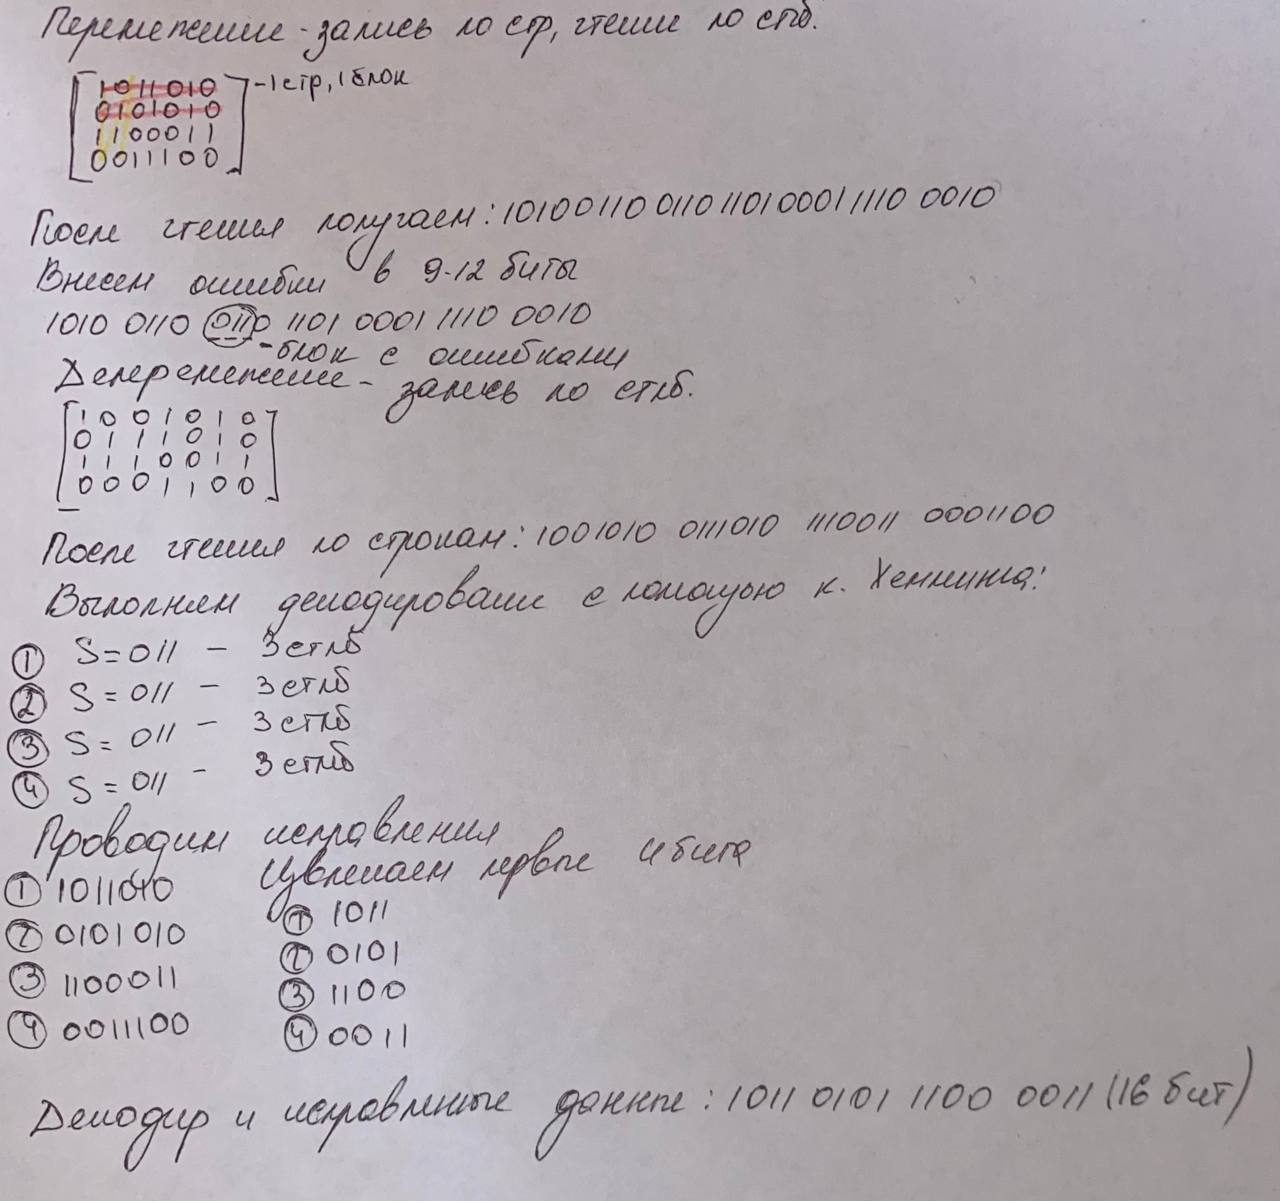 Перемежение - запись по стр, чтение по стлб.
1011010 - 1 стр, 1 блок
0101010
1100011
0011100
После чтения получаем: 1010 0110 0110 1101 0001 1110 0010
Внесем ошибки в 9-12 биты
1010 0110 0110 1101 0001 1110 0010
- блок с ошибками
Деперемежение - запись по стлб.
1001010
0111010
1110011
0001100
После чтения по строкам: 1001010 0111010 1110011 0001100
Выполняем декодирование с помощью к. Хемминга:
① S=011 - 3 стлб
② S=011 - 3 стлб
③ S=011 - 3 стлб
④ S=011 - 3 стлб
Проводим исправления
① 1011010
② 0101010
③ 1100011
④ 0011100
Извлекаем первые 4 бита
① 1011
② 0101
③ 1100
④ 0011
Декодир и исправленные данные: 1011 0101 1100 0011 (16 бит)